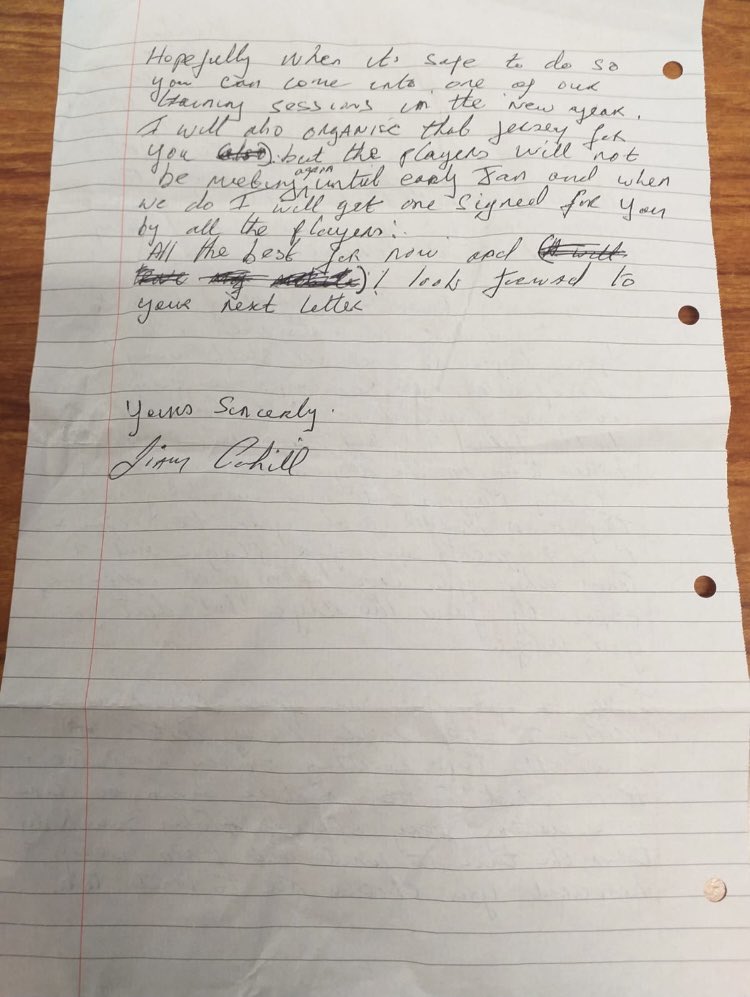 Hopefully when it's safe to do so
you can come into one of our
training sessions in the new year.
I will also organise that jersey for
you (also) but the players will not
be meeting again until early Jan and when
we do I will get one signed for you
by all the players.
All the best for now and (I will
) I look forward to
your next letter
Yours Sincerly.
Jimmy Cahill